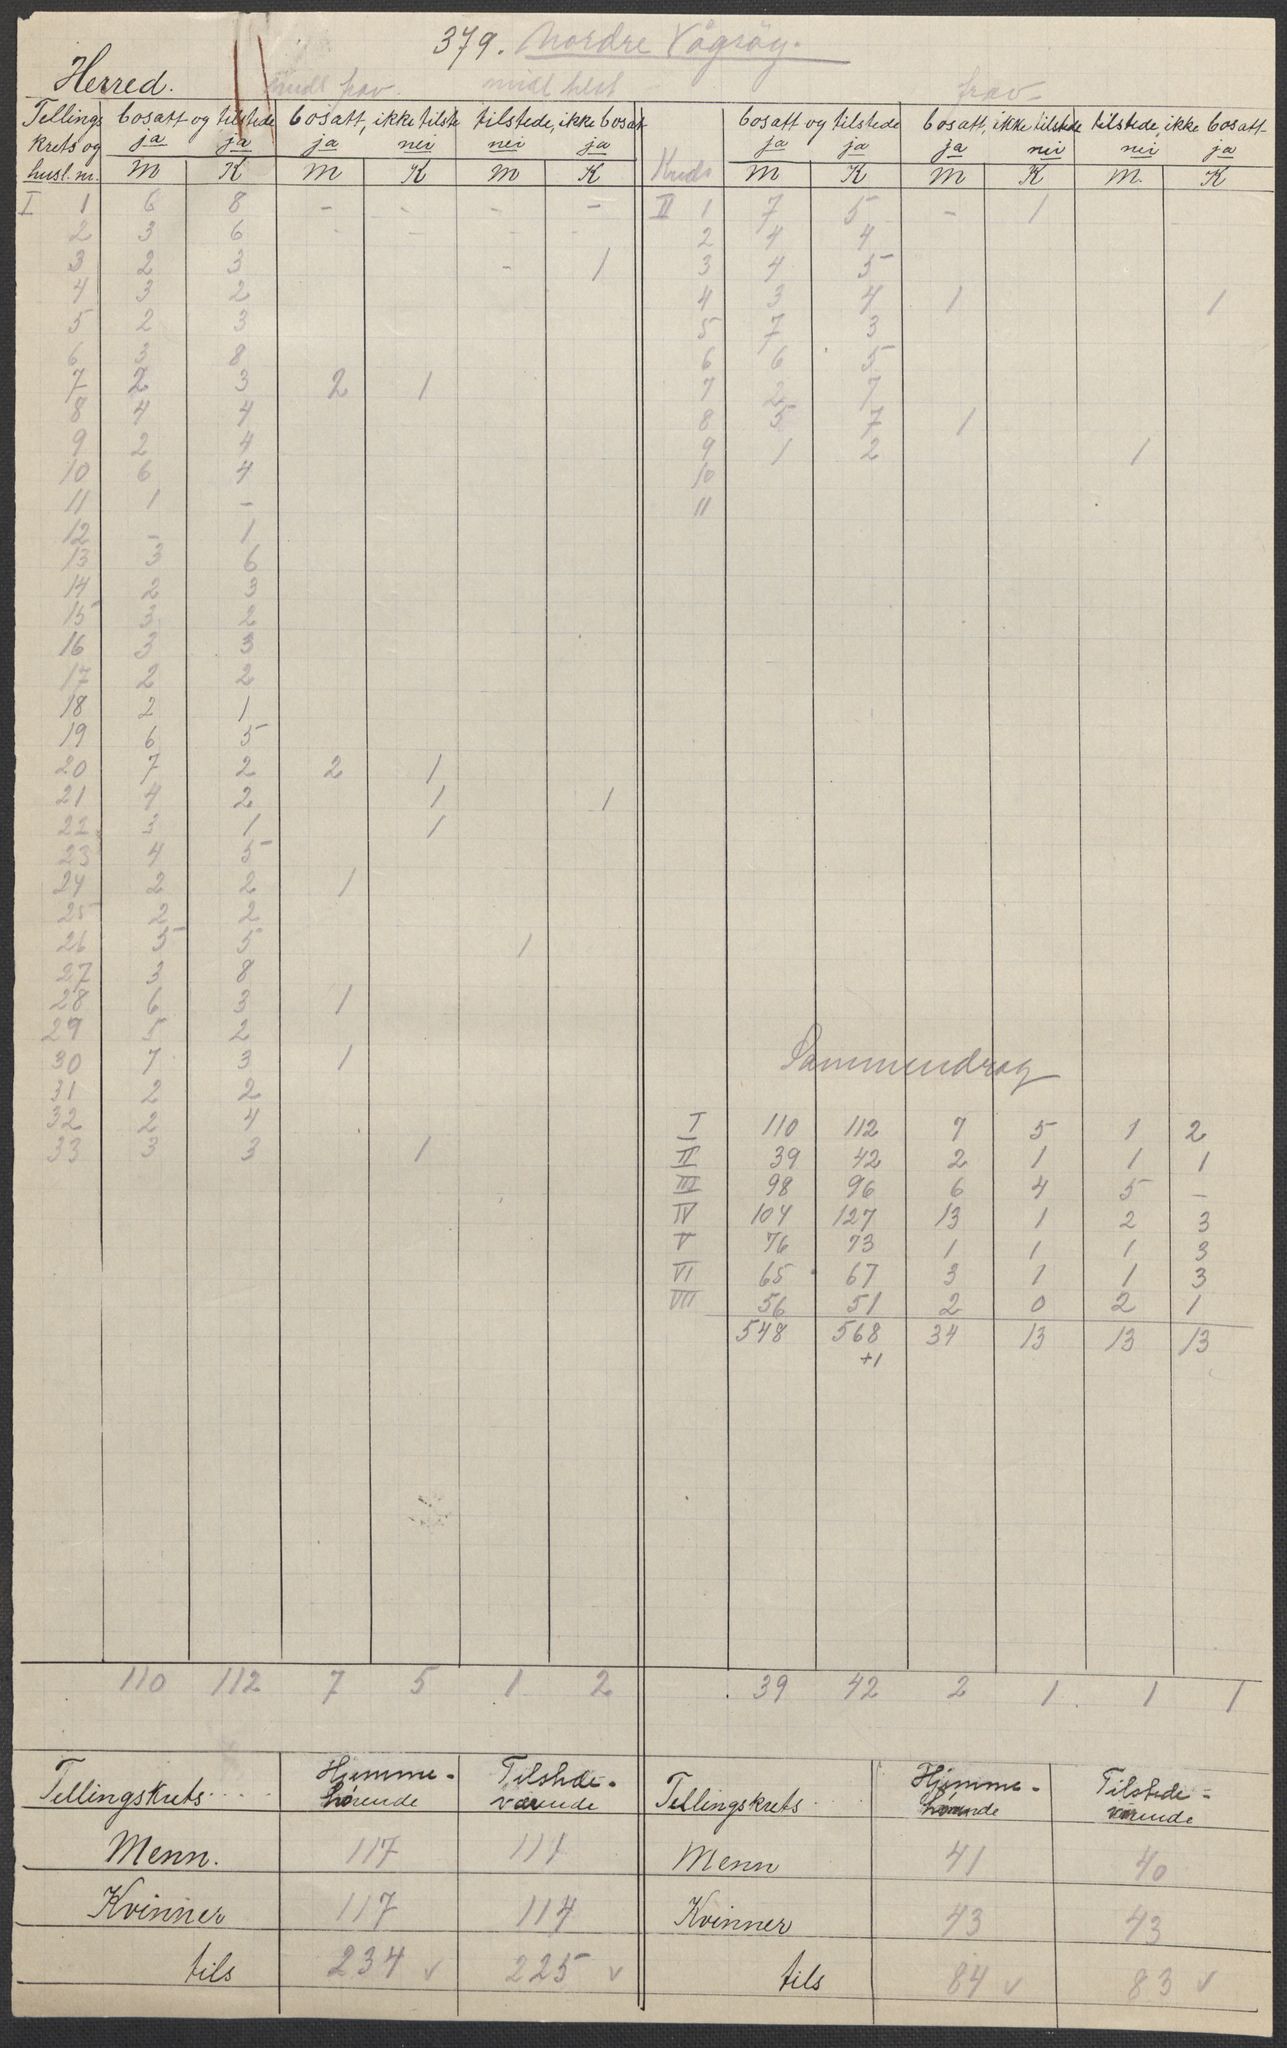 379. Nordre Vågsöy.
Herred. midl frav. midl tilst frav.
Tellings krets og husl. nr. bosatt og tilstede bosatt, ikke tilste tilstede, ikke bosat
ja ja ja nei nei ja
M K M K M K
I 1 6 8 - - - -
2 3 6 - - - -
3 2 3 - 1
4 3 2
5 2 3
6 3 8
7 2 3 2 1
8 4 4
9 2 4
10 6 4
11 1 -
12 - 1
13 3 6
14 2 3
15 3 2
16 3 3
17 2 2
18 2 1
19 6 5
20 7 2 2 1
21 4 2 1 1
22 3 1 1
23 4 5
24 2 2 1
25 2 2
26 5 5 1
27 3 8
28 6 3 1
29 5 2
30 7 3 1
31 2 2
32 2 4
33 3 3 1
110 112 7 5 1 2
Tellingskrets.... Hjemme-hørende Tilstede-værende
Menn. 117 111
Kvinner 117 114
tils 234 v 225 v
bosatt og tilstede bosatt, ikke tilstede tilstede, ikke bosatt
ja ja ja nei nei ja
Kreds M K M K M. K
II 1 7 5 - 1
2 4 4
3 4 5
4 3 4 1 1
5 7 3
6 6 5
7 2 7
8 5 7 1
9 1 2 1
10
11
Sammendrag
I 110 112 7 5 1 2
II 39 42 2 1 1 1
III 98 96 6 4 5 -
IV 104 127 13 1 2 3
V 76 73 1 1 1 3
VI 65 67 3 1 1 3
VII 56 51 2 0 2 1
548 568 34 13 13 13
+1
39 42 2 1 1 1
Tellingskrets.. Hjemme-hørende Tilstede-værende
Menn 41 40
Kvinner 43 43
tils 84 v 83 v